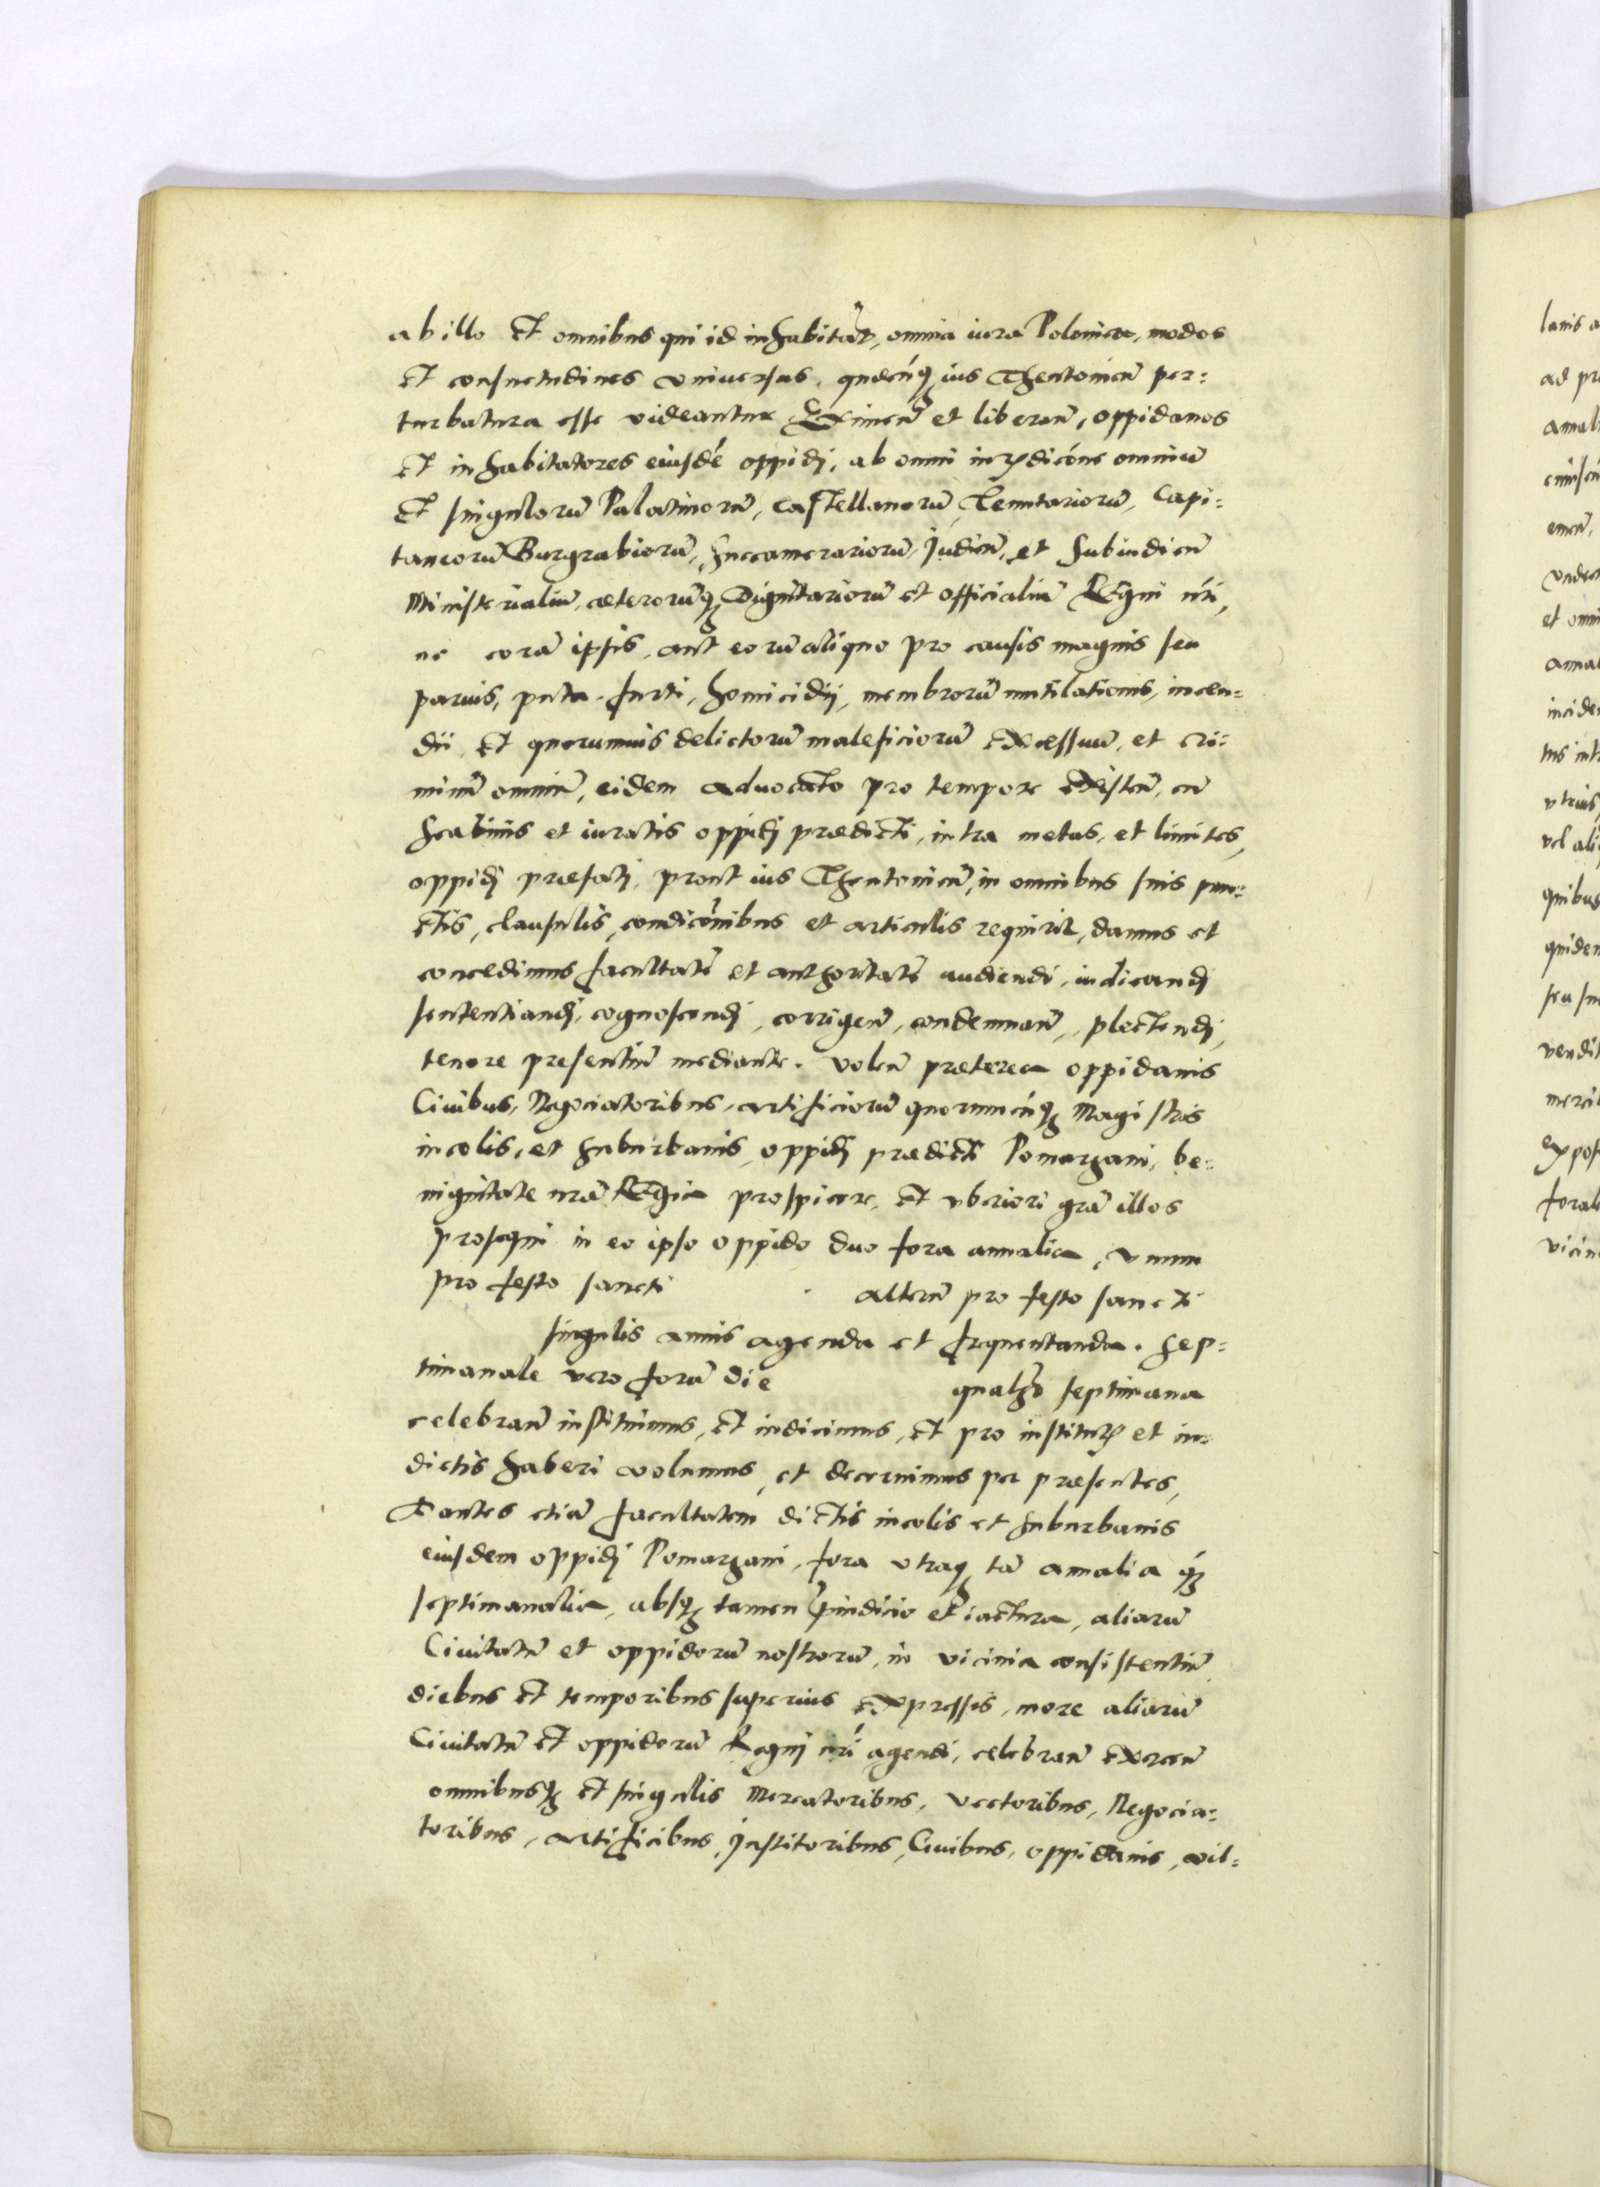 ab illo Et omnibus qui id inhabitāt, omnia iura Polonica, modos
Et consuetudines vniuersas, quaecūq3 ius Theutonicū per=
turbatura esse videantur Eximen̄ et liberan̄, oppidanos
Et inhabitatores eiusdē oppidj, ab omni iurisdicōne omniū
Et singulorū Palatinorū, Castellanorū, Tenutariorū, Capi=
taneorū Burgrabiorū, Succamerariorū, Judicū, et Subiudicū
Ministerialiū, caeterorūq3 Dignitariorū et officialiū Regni nr̄i,
ne corā ipsis, aut eorū aliquo pro causis magnis seu
paruis, puta. furti, homicidij, membrorū mutilationis, incen=
dii, Et quorumuis delictorū maleficiorū Excessuū, et cri=
minū omniū, eidem aduocato pro tempore Existen̄, cū
Scabinis et iuratis oppidj praedicti, intra metas, et limites,
oppidj praefatj, prout ius Theutonicū, in omnibus suis pun=
ctis, clausulis, condicōnibus et articulis requirit, damus et
concedimus facultatē et authoritatē audiendi, iudicandj
sententiandj, cognoscendj, corrigen̄, condemnan̄, plectendj,
tenore presentiū mediante. Volen̄ praeterea oppidanis
Ciuibus, Negociatoribus, artificiorū quorumcūq3 Magistris
incolis, et suburbanis, oppidj praedicti Pomarzani, be=
nignitate nr̄a Regia prospicere, Et vberiori grā illos
prosequi in eo ipso oppido duo fora annalia, vnum
pro festo sancti alterū pro festo sancti
singulis annis agenda et frequentanda. Sep=
timanale vero forū die qualibet septimana
celebran̄ instituimus, Et indicimus, Et pro institutis et in=
dictis haberi volumus, et decernimus per praesentes,
Dantes etiā facultatem dictis incolis et suburbanis
eiusdem oppidj Pomarzani, fora vtraq3 tā annalia q̄3
septimanalia, absq3 tamen praeiudicio et iactura, aliarū
Ciuitatū et oppidorū nostrorū, in vicinia consistentiū
diebus Et temporibus superius Expressis, more aliarū
Ciuitatū Et oppidorū Regni nr̄i agendi, celebran̄ Exercen̄
omnibusq3 Et singulis Mercatoribus, Vectoribus, Negocia=
toribus, artificibus, Institoribus, Ciuibus, oppidanis, vil=